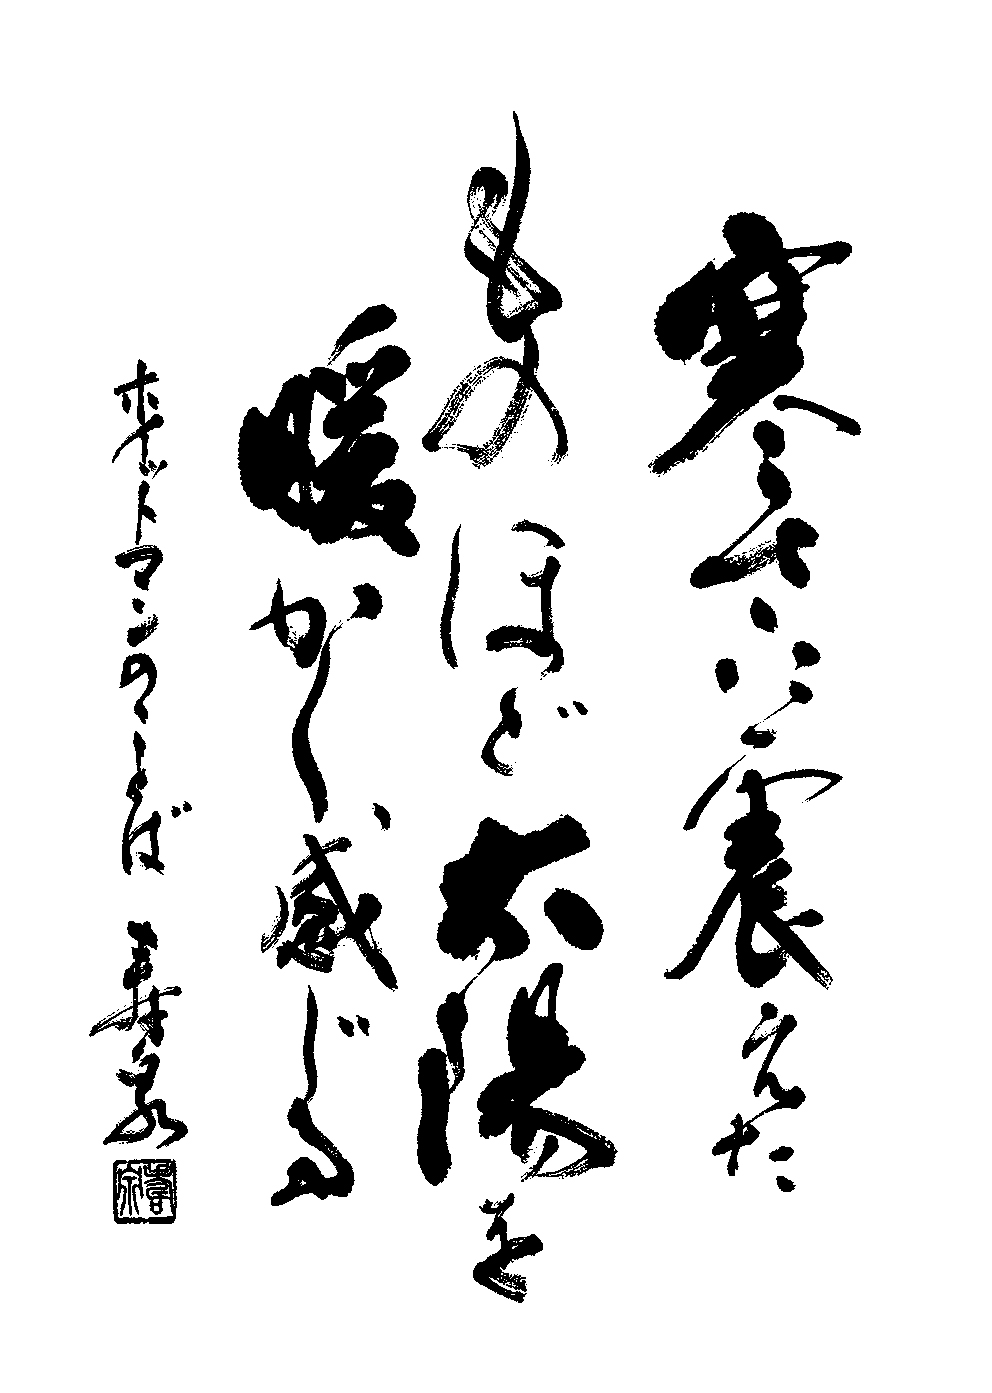 寒さに震えた
ものほど太陽を
暖かく感じる
ホイットマンのことば 壽泉